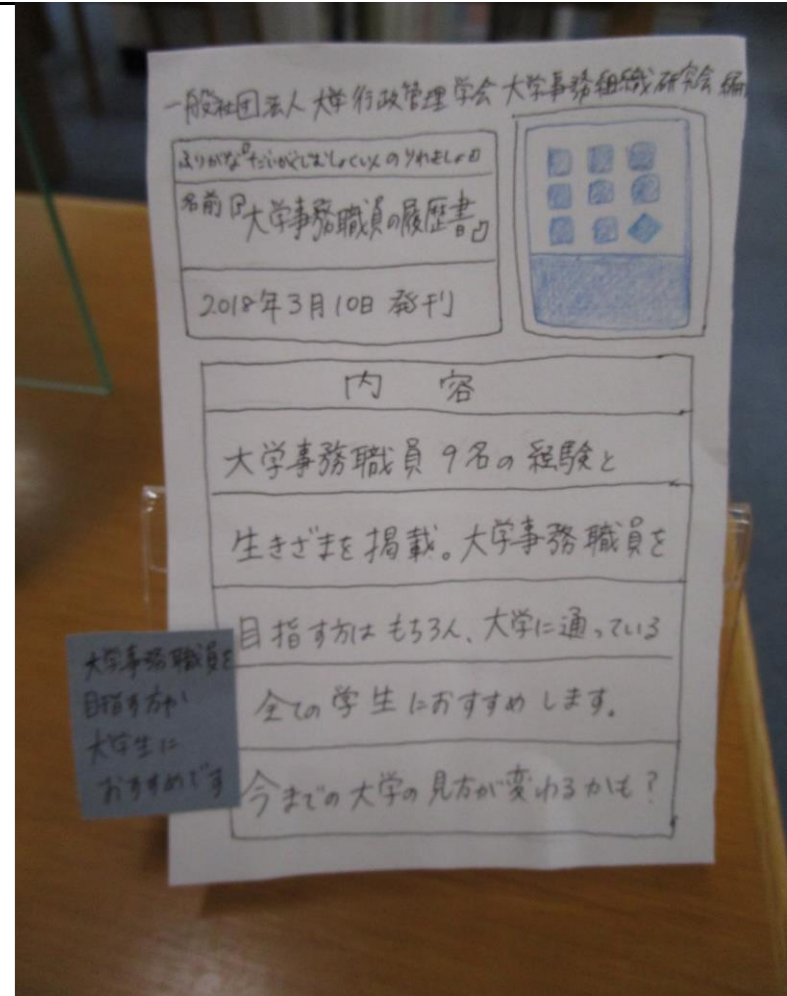 一般社団法人 大学行政管理学会 大学事務組織研究会 編
ふりがな『だいがくじむしょくいんのりれきしょ』
名前『大学事務職員の履歴書』
2018年3月10日 発刊
内 容
大学事務職員 9名の 経験と
生きざまを 掲載。大学事務職員を
目指す方は もちろん、大学に通っている
全ての学生におすすめします。
今までの大学の見方が変わるかも?
大学事務職員を
目指す方や
大学生に
おすすめです